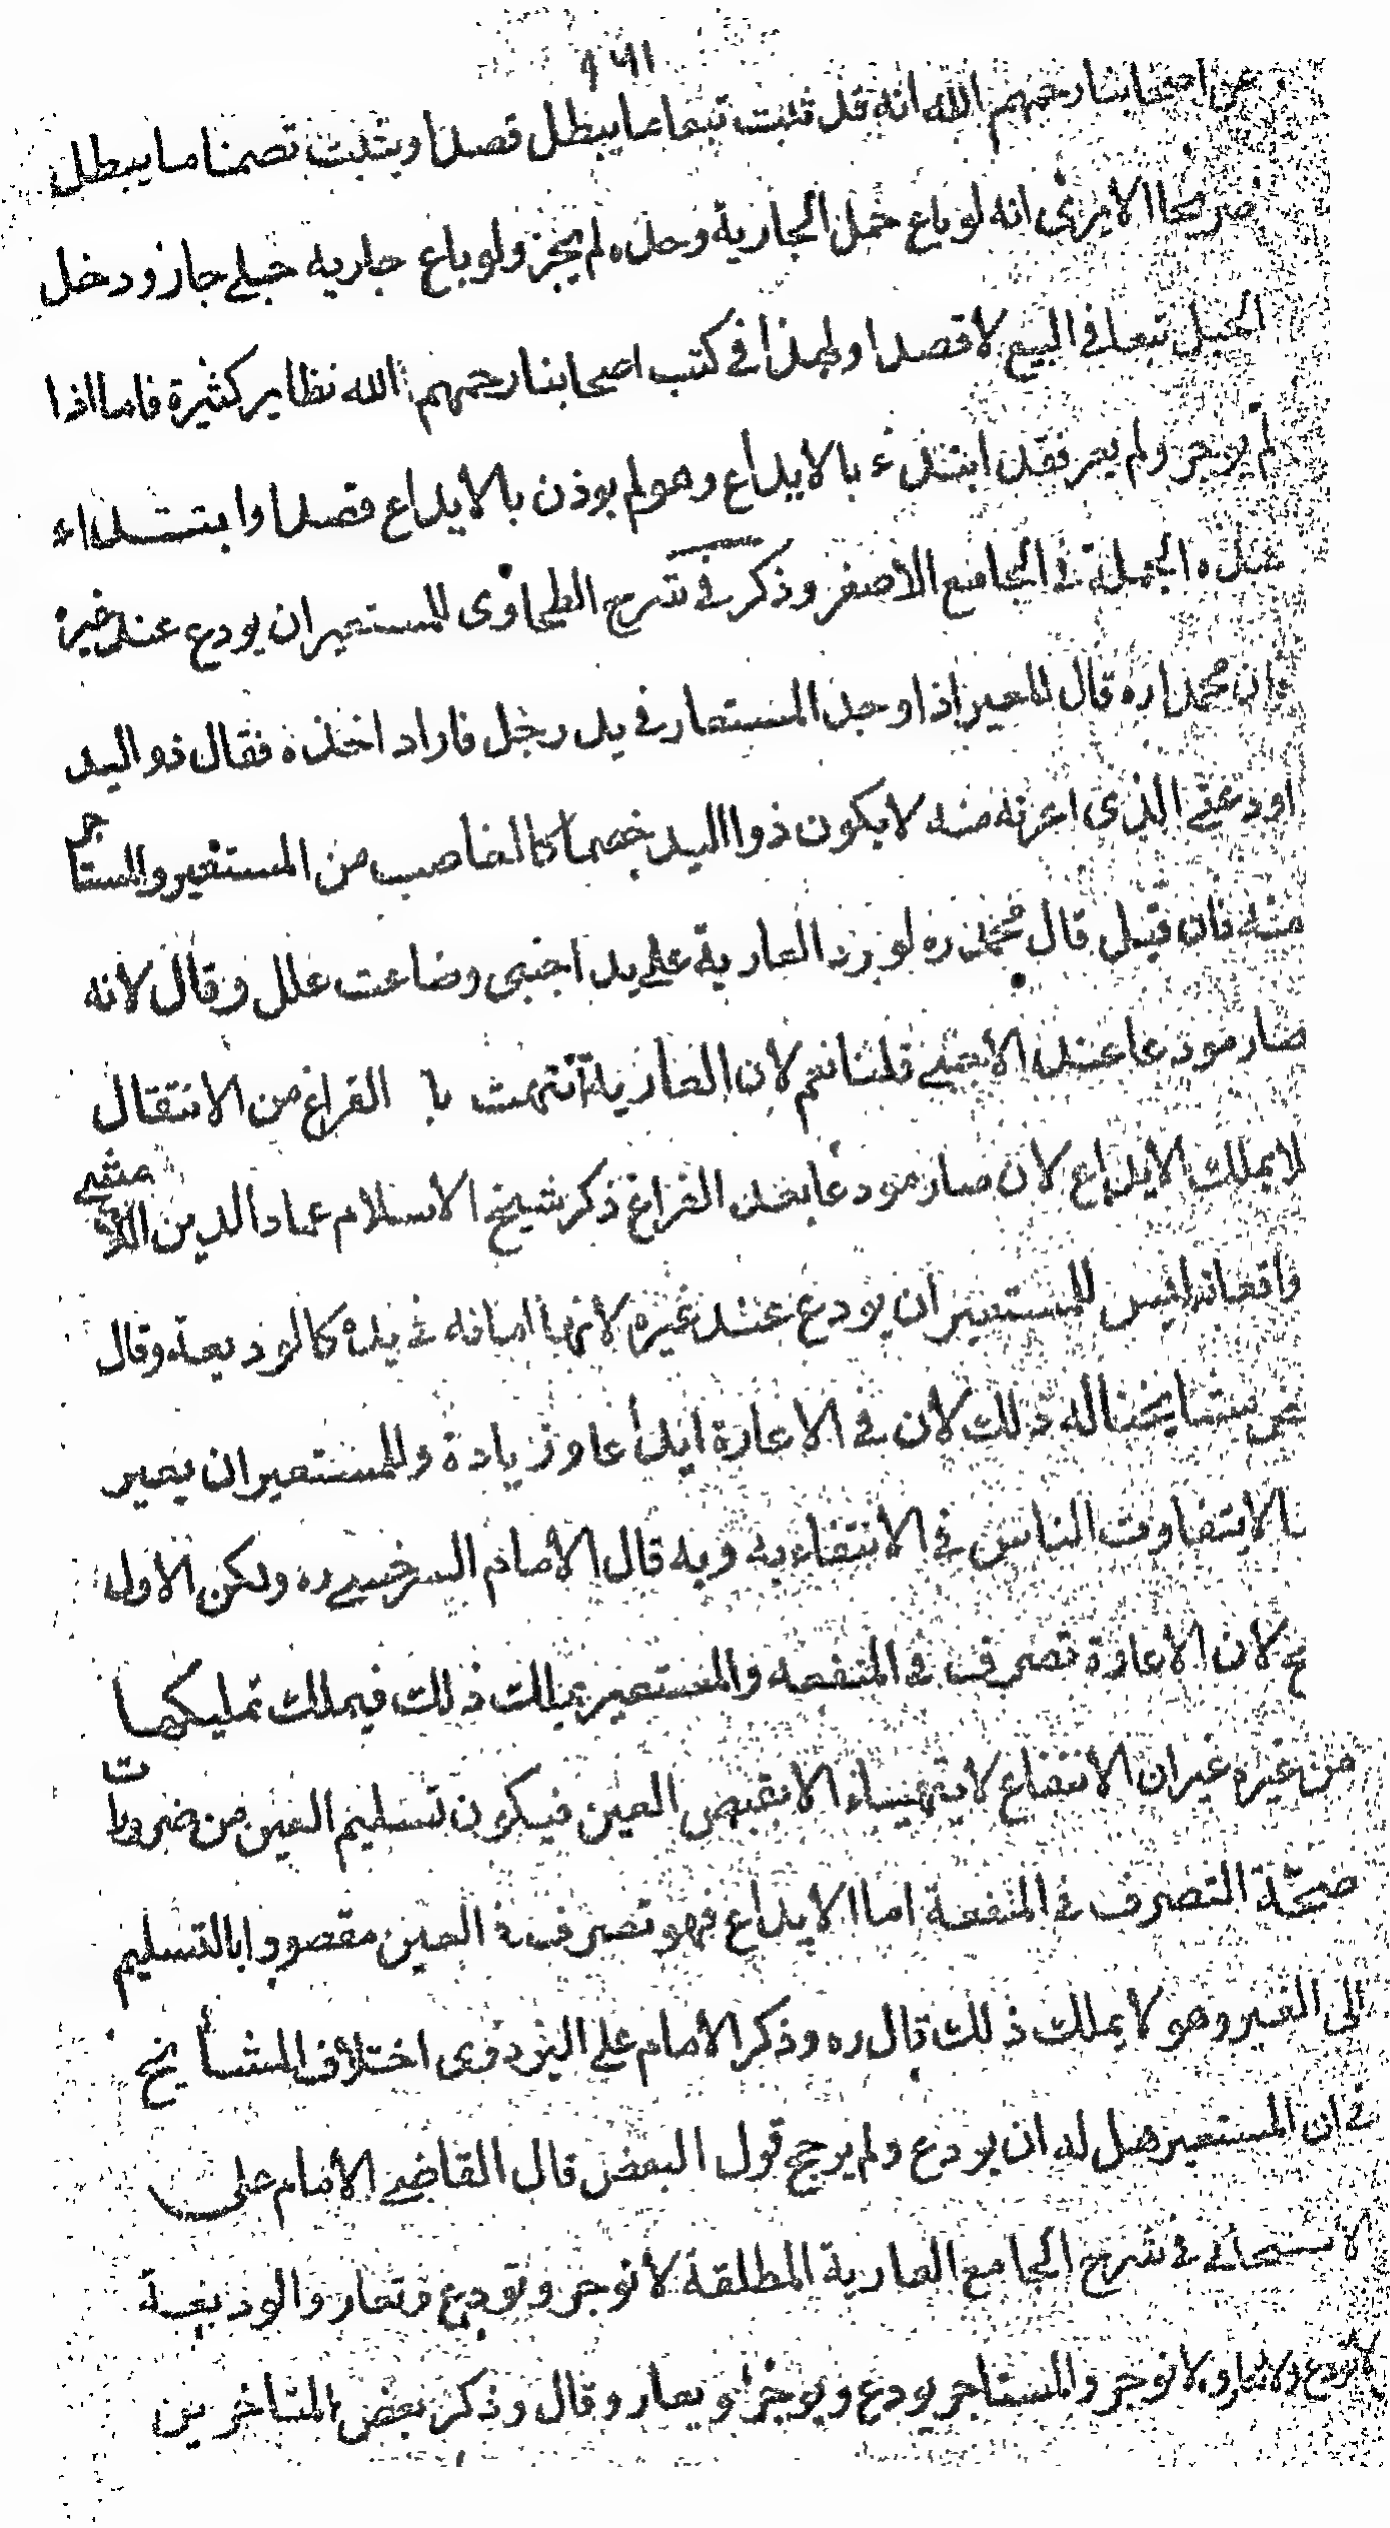 ١٦١
وعن اصحابنا رحمهم الله انه قد تثبت تبعا ما يبطل قصدا ويثبت تضمنا ما يبطل
صريحا الا يرى انه لو باع حمل الجارية وحده لم يجز ولو باع جارية حبلى جاز ودخل
الحبل تبعا في البيع لا قصدا ولهذا في كتب اصحابنا رحمهم الله نظاير كثيرة فاما اذا
لم يوجر ولم يعر فقد ابتدء بالايداع وهو لم يوذن بالايداع قصدا وابتداء
هذه الجملة في الجامع الاصغر وذكر في شرح الطحاوى للمستعير ان يودع عند غيره
فان محمدا ره قال للمعير اذا وجد المستعار في يد رجل فاراد اخذه فقال ذو اليد
اودعني الذى اعرته منه لا يكون ذوا اليد خصما كالغاصب من المستعير والمستاجر
منه فان قيل قال محمد ره لو رد العارية على يد اجنبى وضاعت علل وقال لانه
صار مودعا عند الاجنبي قلنا نعم لان العارية انتهت با الفراغ من الانتقال
لا يملك الايداع لان صار مودعا بعد الفراغ ذكر شيخ الاسلام عماد الدين
واقعاته ليس للمستعير ان يودع عند غيره لانها امانه في يده كالوديعة وقال
بعض مشايخنا له ذلك لان في الاعارة ايداعا وزيادة وللمستعير ان يعير
ما لا يتفاوت الناس في الانتفاء به وبه قال الامام السرخسي ره ولكن الاول
صح لان الاعاوة تصرف في المنفعه والمستعير يملك ذلك فيملك تمليكها
من غيره غير ان الانتفاع لا يتهيساء الا بقبض العين فيكون تسليم العين من ضرورات
صحّة التصرف في المنفعة اما الايداع فهو تصرف في العين مقصودا بالتسليم
الى الغير وهو لا يملك ذلك قال ره وذكر الامام علي البزدوى اختلاف المشايخ
في ان المستعير هل له ان يودع ولم يرجح قول البعض قال القاضي الامام على
الاسبيجابي في شرح الجامع العارية المطلقة لا توجر وتودع وتعار والوديعة
لا تودع ولا تعار ولا توجر والمستاجر يودع ويوجر ويعار وقال وذكر بعض المتاخرين